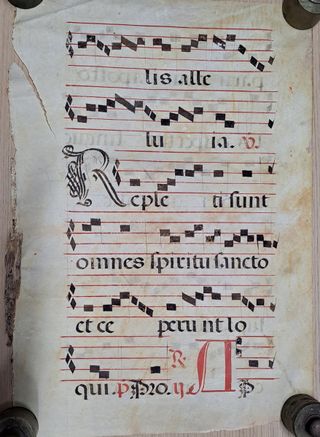 lis alle
lu ia. V.
Reple ti sunt
omnes spiritu sancto
et ce peru nt lo
qui. P. Pro. ij. R. A P